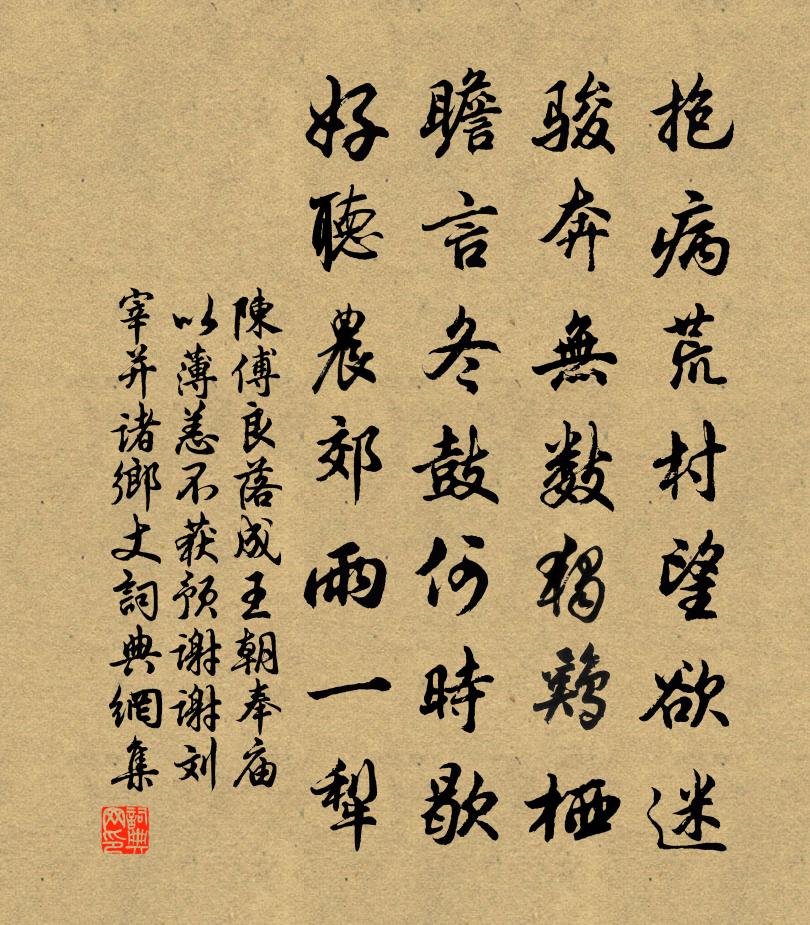 抱病荒村望欲迷
骏奔無數独鶏栖
瞻言冬鼓何時歇
好聽農郊雨一犁
陳傅良落成王朝奉庙
以薄恙不获预谢谢刘
宰并诸鄉丈詞典網集
詞典网印